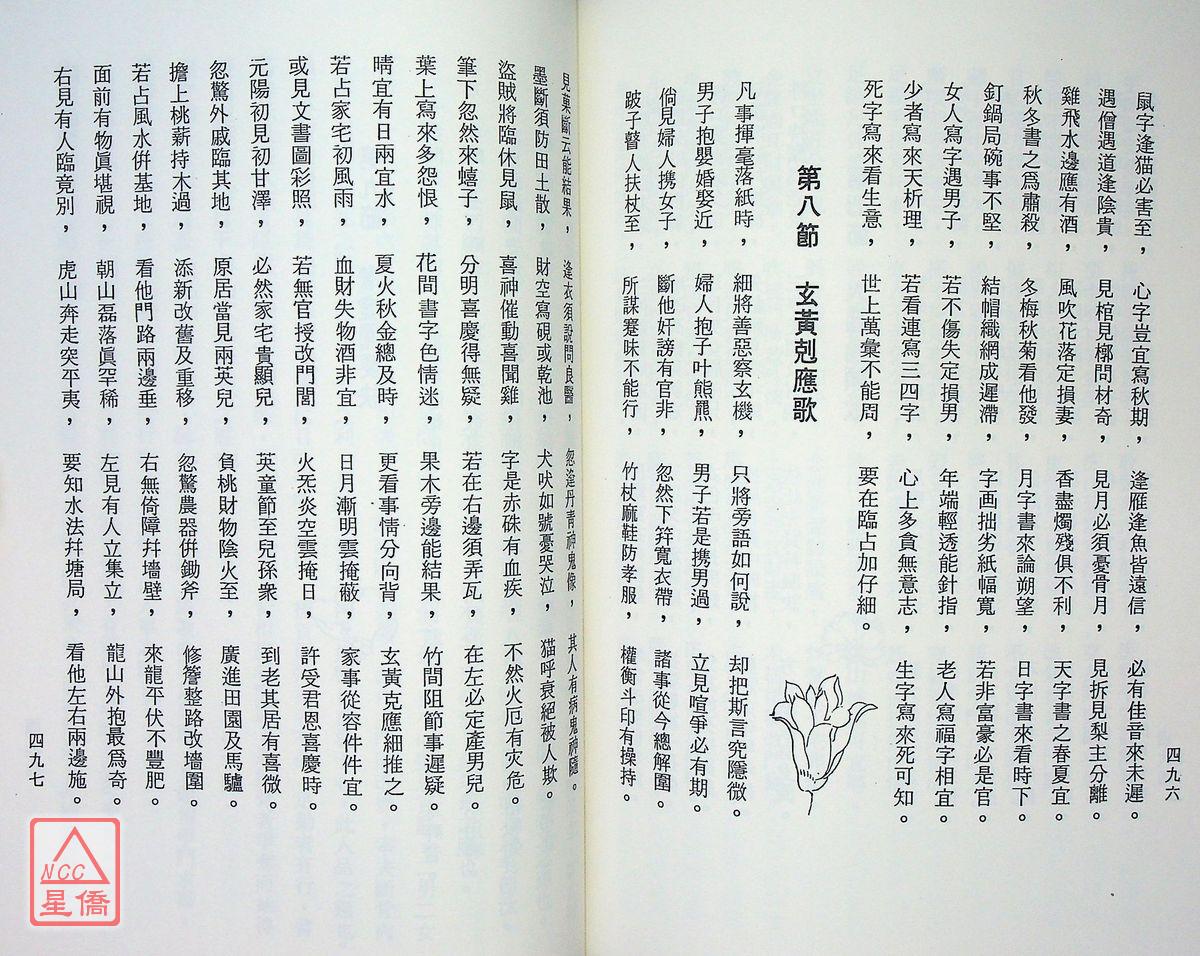 鼠字逢猫必害至，心字豈宜寫秋期，逢雁逢魚皆遠信，必有佳音來未遲。
遇僧遇道逢陰貴，見棺見槨問材奇，見月必須憂骨月，見拆見梨主分離。
雞飛水邊應有酒，風吹花落定損妻，香盡燭殘俱不利，天字書之春夏宜。
秋冬書之爲肅殺，冬梅秋菊看他發，月字書來論朔望，日字書來看時下。
釘鍋局碗事不堅，結帽織網成遲滯，字画拙劣紙幅寬，若非富豪必是官。
女人寫字遇男子，若不傷失定損男，年端輕透能針指，老人寫福字相宜。
少者寫來夭析理，若看連寫三四字，心上多貪無意志，生字寫來死可知。
死字寫來看生意，世上萬彙不能周，要在臨占加仔細。
第八節 玄黃剋應歌
凡事揮毫落紙時，細將善惡察玄機，只將旁語如何說，却把斯言究隱微。
男子抱嬰婚娶近，婦人抱子叶熊羆，男子若是携男過，立見喧爭必有期。
倘見婦人携女子，斷他奸謗有官非，忽然下笄寬衣帶，諸事從今總解圍。
跛子瞽人扶杖至，所謀蹇味不能行，竹杖麻鞋防孝服，權衡斗印有操持。
四九六
見菓斷云能結果，逢衣須說問良醫，忽逢丹青神鬼像，其人有病鬼神隱。
墨斷須防田土散，財空寫硯或乾池，犬吠如號憂哭泣，猫呼哀絕被人欺。
盜賊將臨休見鼠，喜神催動喜聞雞，字是赤硃有血疾，不然火厄有灾危。
筆下忽然來蟢子，分明喜慶得無疑，若在右邊須弄瓦，在左必定產男兒。
葉上寫來多怨恨，花間書字色情迷，果木旁邊能結果，竹間阻節事遲疑。
晴宜有日兩宜水，夏火秋金總及時，更看事情分向背，玄黃克應細推之。
若占家宅初風雨，血財失物酒非宜，日月漸明雲掩蔽，家事從容件件宜。
或見文書圖彩照，若無官授改門閭，火炁炎空雲掩日，許受君恩喜慶時。
元陽初見初甘澤，必然家宅貴顯兒，英童節至兒孫衆，到老其居有喜微。
忽驚外戚臨其地，原居當見兩英兒，負桃財物陰火至，廣進田園及馬驢。
擔上桃薪持木過，添新改舊及重移，忽驚農器併鋤斧，修簷整路改墻圍。
若占風水併基地，看他門路兩邊垂，右無倚障幷墻壁，來龍平伏不豐肥。
面前有物眞堪視，朝山磊落眞罕稀，左見有人立集立，龍山外抱最爲奇。
右見有人臨竟別，虎山奔走突平夷，要知水法幷塘局，看他左右兩邊施。
四九七
NCC
星僑